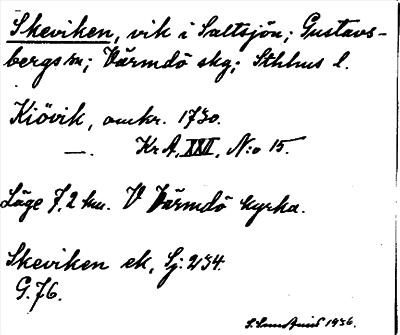 Skeviken, vik i Saltsjön; Gustavs-
bergs sn; Värmdö skg; Sthlms l.
Kiövik, omkr. 1730.
—. KrA, XXII, N:o 15.
Läge 7,2 km. V Värmdö kyrka.
Skeviken ek, Sj: 234.
G. 76.
1936.